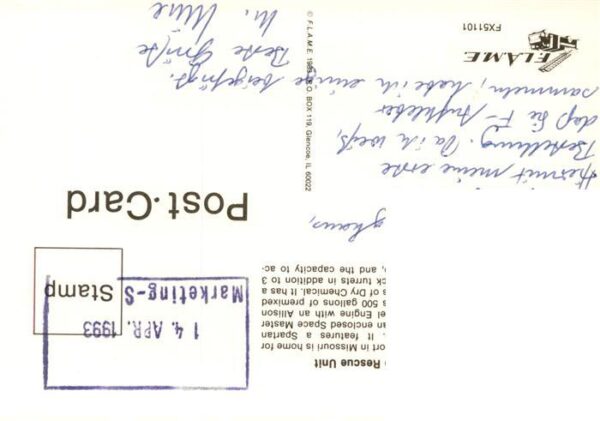 Rescue Unit
ort in Missouri is home for
. It features a Spartan
an enclosed Space Master
el Engine with an Allison
s 500 gallons of premixed
s of Dry Chemical. It has a
ck turrets in addition to 3
, and the capacity to ac-
14. APR. 1993
Marketing-S
Stamp
Post-Card
ghaus,
Hiermit meine erste
Bestellung. Da ich weiß,
daß Sie F- Aufkleber
sammeln, habe ich einige
beigefügt.
Beste Grüße
M.
© F.L.A.M.E. P.O. BOX 119, Glencoe, IL 60022
F.L.A.M.E.
FX51101